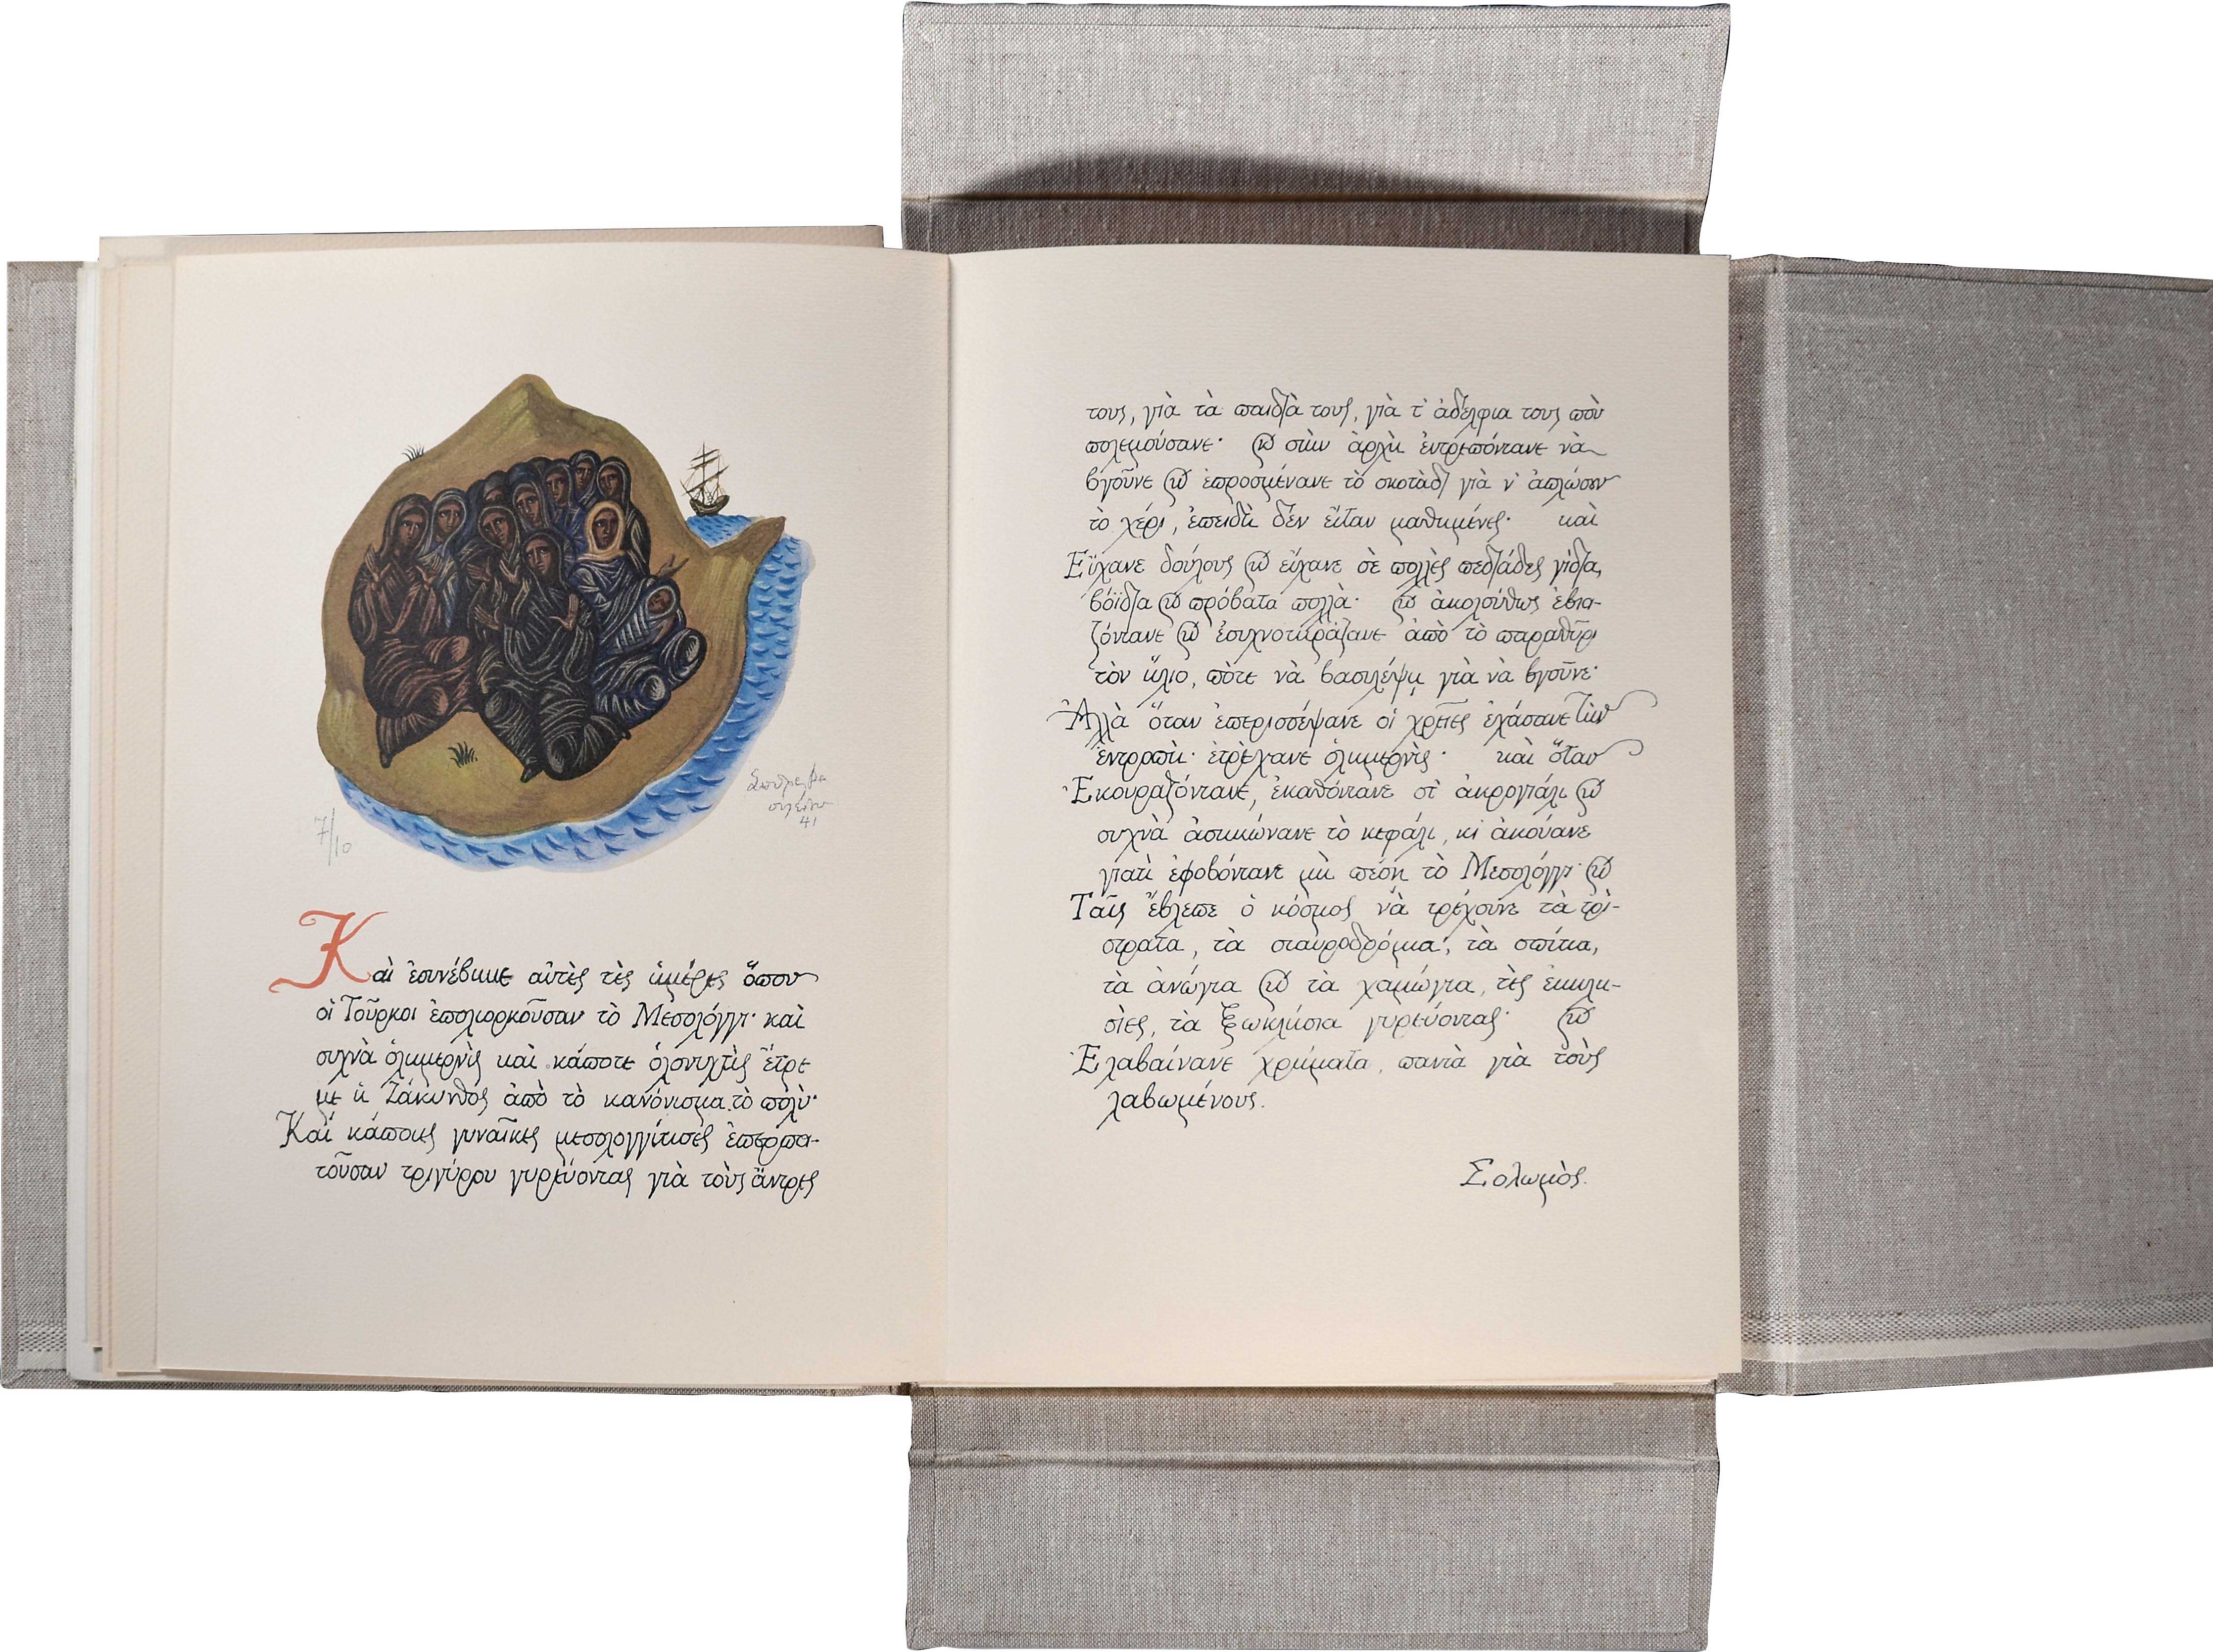 41
7/10
Καὶ ἐσυνέβηκε αὐτὲς τὲς ἡμέρες ὅπου
οἱ Τοῦρκοι ἐπολιορκοῦσαν τὸ Μεσολόγγι· καὶ
συχνὰ ὁλημερνὶς καὶ κάποτε ὁλονυχτὶς ἔτρε
με ἡ Ζάκυνθος ἀπὸ τὸ κανόνισμα τὸ πολύ·
Καὶ κάποιες γυναῖκες μεσολογγίτισες ἐπερπα-
τοῦσαν τριγύρου γυρεύοντας γιὰ τοὺς ἄντρες
τους, γιὰ τὰ παιδιὰ τους, γιὰ τ' ἀδέλφια τους ποὺ
πολεμούσανε· ϗ στὴν ἀρχὴ ἐντρεπόντανε νὰ
βγοῦνε ϗ ἐπροσμένανε τὸ σκοτάδι γιὰ ν' ἁπλώσουν
τὸ χέρι, ἐπειδὴ δέν εἴταν μαθημένες· καὶ
Εἴχανε δούλους ϗ εἴχανε σὲ πολλὲς πεδιάδες γίδια,
βόϊδια ϗ πρόβατα πολλά· ϗ ἀκολούθως ἐβια-
ζόντανε ϗ ἐσυχνοτηράζανε ἀπὸ τὸ παραθύρι
τὸν ἥλιο, πότε νὰ βασιλέψῃ γιὰ νὰ βγοῦνε·
Ἀλλὰ ὅταν ἐπερισσέψανε οἱ χρεῖες ἐχάσανε τὴν
ἐντροπὴ· ἐτρέχανε ὁλημερνὶς· καὶ ὅταν
Ἐκουραζόντανε, ἐκαθόντανε στ' ἀκρογιάλι ϗ
συχνὰ ἀσηκώνανε τὸ κεφάλι, κι ἀκούανε
γιατὶ ἐφοβόντανε μὴ πέσῃ τὸ Μεσολόγγι· ϗ
Ταῖς ἔβλεπε ὁ κόσμος νὰ τρέχουνε τὰ τρί-
στρατα, τὰ σταυροδρόμια, τὰ σπίτια,
τὰ ἀνώγια ϗ τὰ χαμώγια, τὲς ἐκκλη-
σίες, τὰ ξωκλήσια γυρεύοντας· ϗ
Ἐλαβαίνανε χρήματα, πανιὰ γιὰ τοὺς
λαβωμένους.
Σολωμὸς.